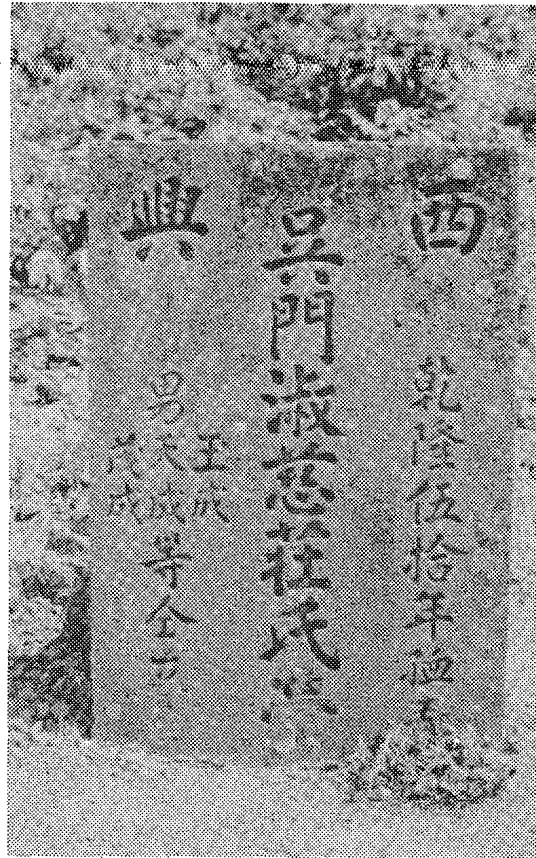 西 興
乾隆伍拾年
吳門淑慈莊氏
男 王成 天成 茂成 等仝立